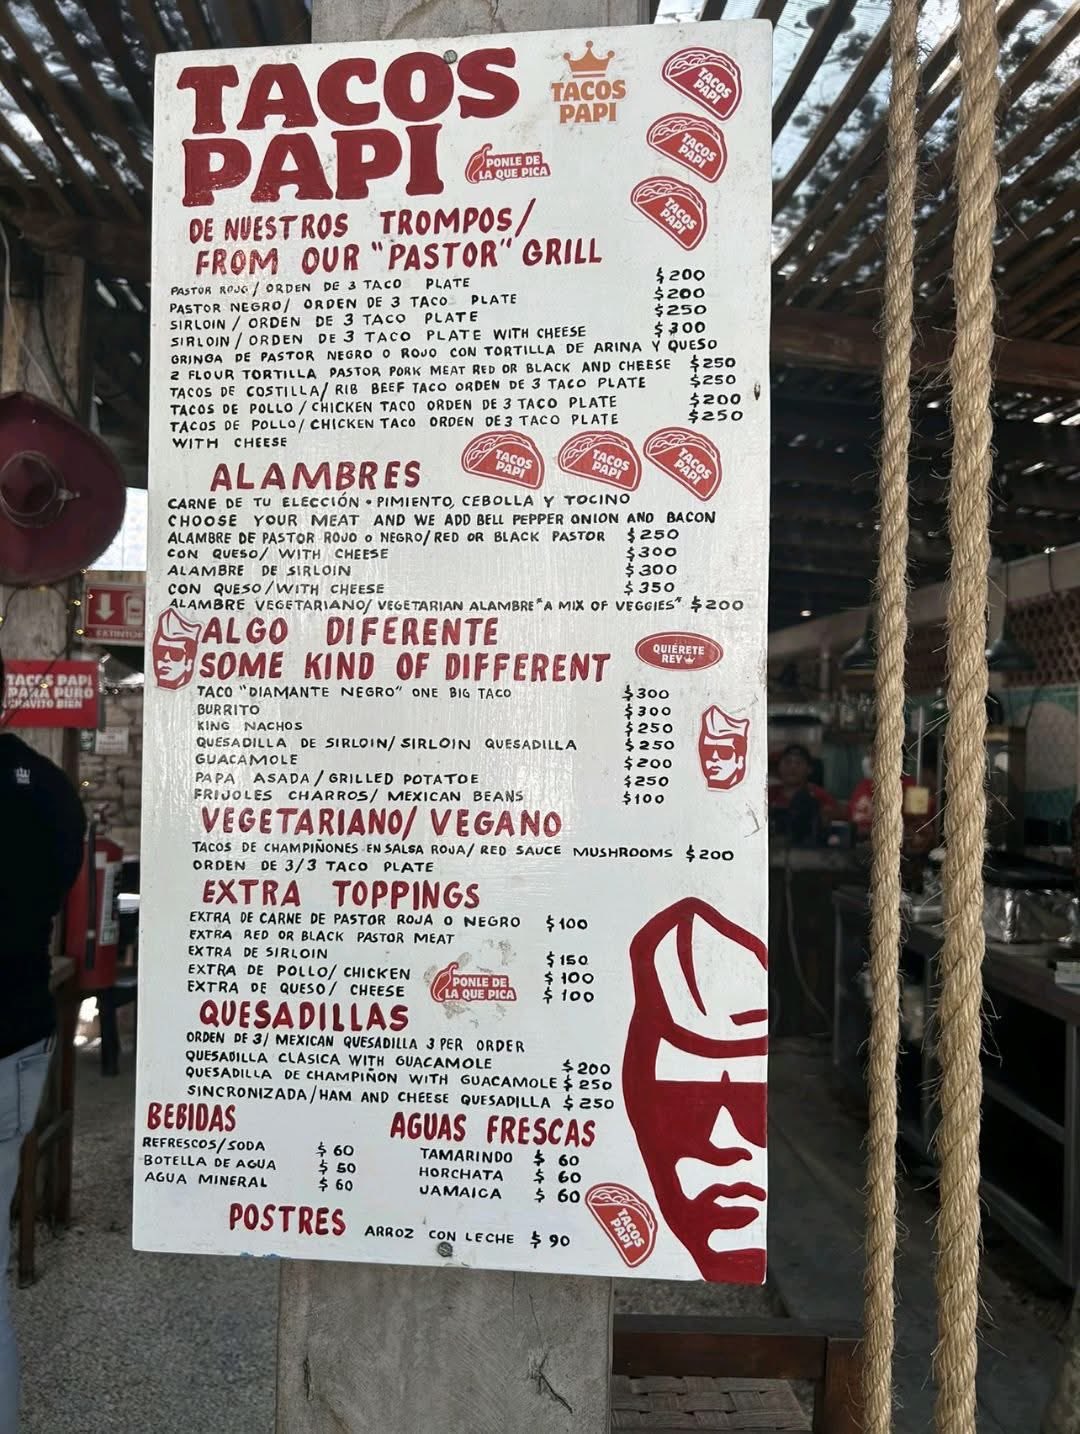 TACOS
PAPI
TACOS
PAPI
TACOS
PAPI
TACOS
PAPI
TACOS
PAPI
PONLE DE
LA QUE PICA
DE NUESTROS TROMPOS/
FROM OUR "PASTOR" GRILL
PASTOR ROJO/ ORDEN DE 3 TACO PLATE $200
PASTOR NEGRO/ ORDEN DE 3 TACO PLATE $200
SIRLOIN/ ORDEN DE 3 TACO PLATE $250
SIRLOIN/ ORDEN DE 3 TACO PLATE WITH CHEESE $300
GRINGA DE PASTOR NEGRO O ROJO CON TORTILLA DE ARINA Y QUESO
2 FLOUR TORTILLA PASTOR PORK MEAT RED OR BLACK AND CHEESE $250
TACOS DE COSTILLA/ RIB BEEF TACO ORDEN DE 3 TACO PLATE $250
TACOS DE POLLO/CHICKEN TACO ORDEN DE 3 TACO PLATE $200
TACOS DE POLLO/CHICKEN TACO ORDEN DE 3 TACO PLATE $250
WITH CHEESE
TACOS
PAPI
TACOS
PAPI
TACOS
PAPI
ALAMBRES
CARNE DE TU ELECCIÓN • PIMIENTO, CEBOLLA Y TOCINO
CHOOSE YOUR MEAT AND WE ADD BELL PEPPER ONION AND BACON
ALAMBRE DE PASTOR ROJO o NEGRO/RED OR BLACK PASTOR $250
CON QUESO/ WITH CHEESE $300
ALAMBRE DE SIRLOIN $300
CON QUESO/WITH CHEESE $350
ALAMBRE VEGETARIANO/ VEGETARIAN ALAMBRE "A MIX OF VEGGIES" $200
ALGO DIFERENTE
SOME KIND OF DIFFERENT
QUIÉRETE
REY
TACO "DIAMANTE NEGRO" ONE BIG TACO $300
BURRITO $300
KING NACHOS $250
QUESADILLA DE SIRLOIN/ SIRLOIN QUESADILLA $250
GUACAMOLE $200
PAPA ASADA/GRILLED POTATOE $250
FRIJOLES CHARROS/ MEXICAN BEANS $100
VEGETARIANO/ VEGANO
TACOS DE CHAMPIÑONES EN SALSA ROJA/ RED SAUCE MUSHROOMS $200
ORDEN DE 3/3 TACO PLATE
EXTRA TOPPINGS
EXTRA DE CARNE DE PASTOR ROJA O NEGRO $100
EXTRA RED OR BLACK PASTOR MEAT
EXTRA DE SIRLOIN $150
EXTRA DE POLLO/ CHICKEN $100
EXTRA DE QUESO/ CHEESE $100
PONLE DE
LA QUE PICA
QUESADILLAS
ORDEN DE 3/ MEXICAN QUESADILLA 3 PER ORDER
QUESADILLA CLASICA WITH GUACAMOLE $200
QUESADILLA DE CHAMPIÑON WITH GUACAMOLE $250
SINCRONIZADA/HAM AND CHEESE QUESADILLA $250
BEBIDAS
REFRESCOS/SODA $60
BOTELLA DE AGUA $50
AGUA MINERAL $60
AGUAS FRESCAS
TAMARINDO $60
HORCHATA $60
JAMAICA $60
POSTRES ARROZ CON LECHE $90
TACOS
PAPI
EXTINTOR
TACOS PAPI
PARA PURO
CHAVITO BIEN